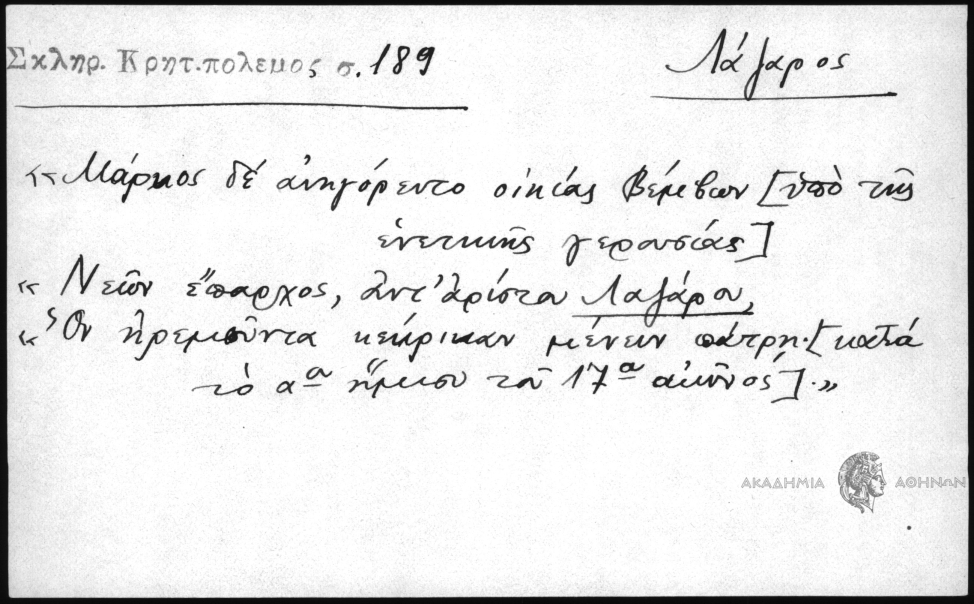 Σκληρ. Κρητ.πολεμος σ. 189
Λάζαρος
«Μάρκος δέ ἀνηγόρευτο οἰκίας Βέμβων [ὑπὸ τῆς
ἑνετικῆς γερουσίας]
« Νεῶν ἔπαρχος, ἀντ' ἀρίστου Λαζάρου,
« Ὃν ἠρεμοῦντα κεκρίκαν μένειν πάτρῃ.[κατά
τὸ αον ἥμισυ τοῦ 17ου αἰῶνος].»
ΑΚΑΔΗΜΙΑ ΑΘΗΝΩΝ